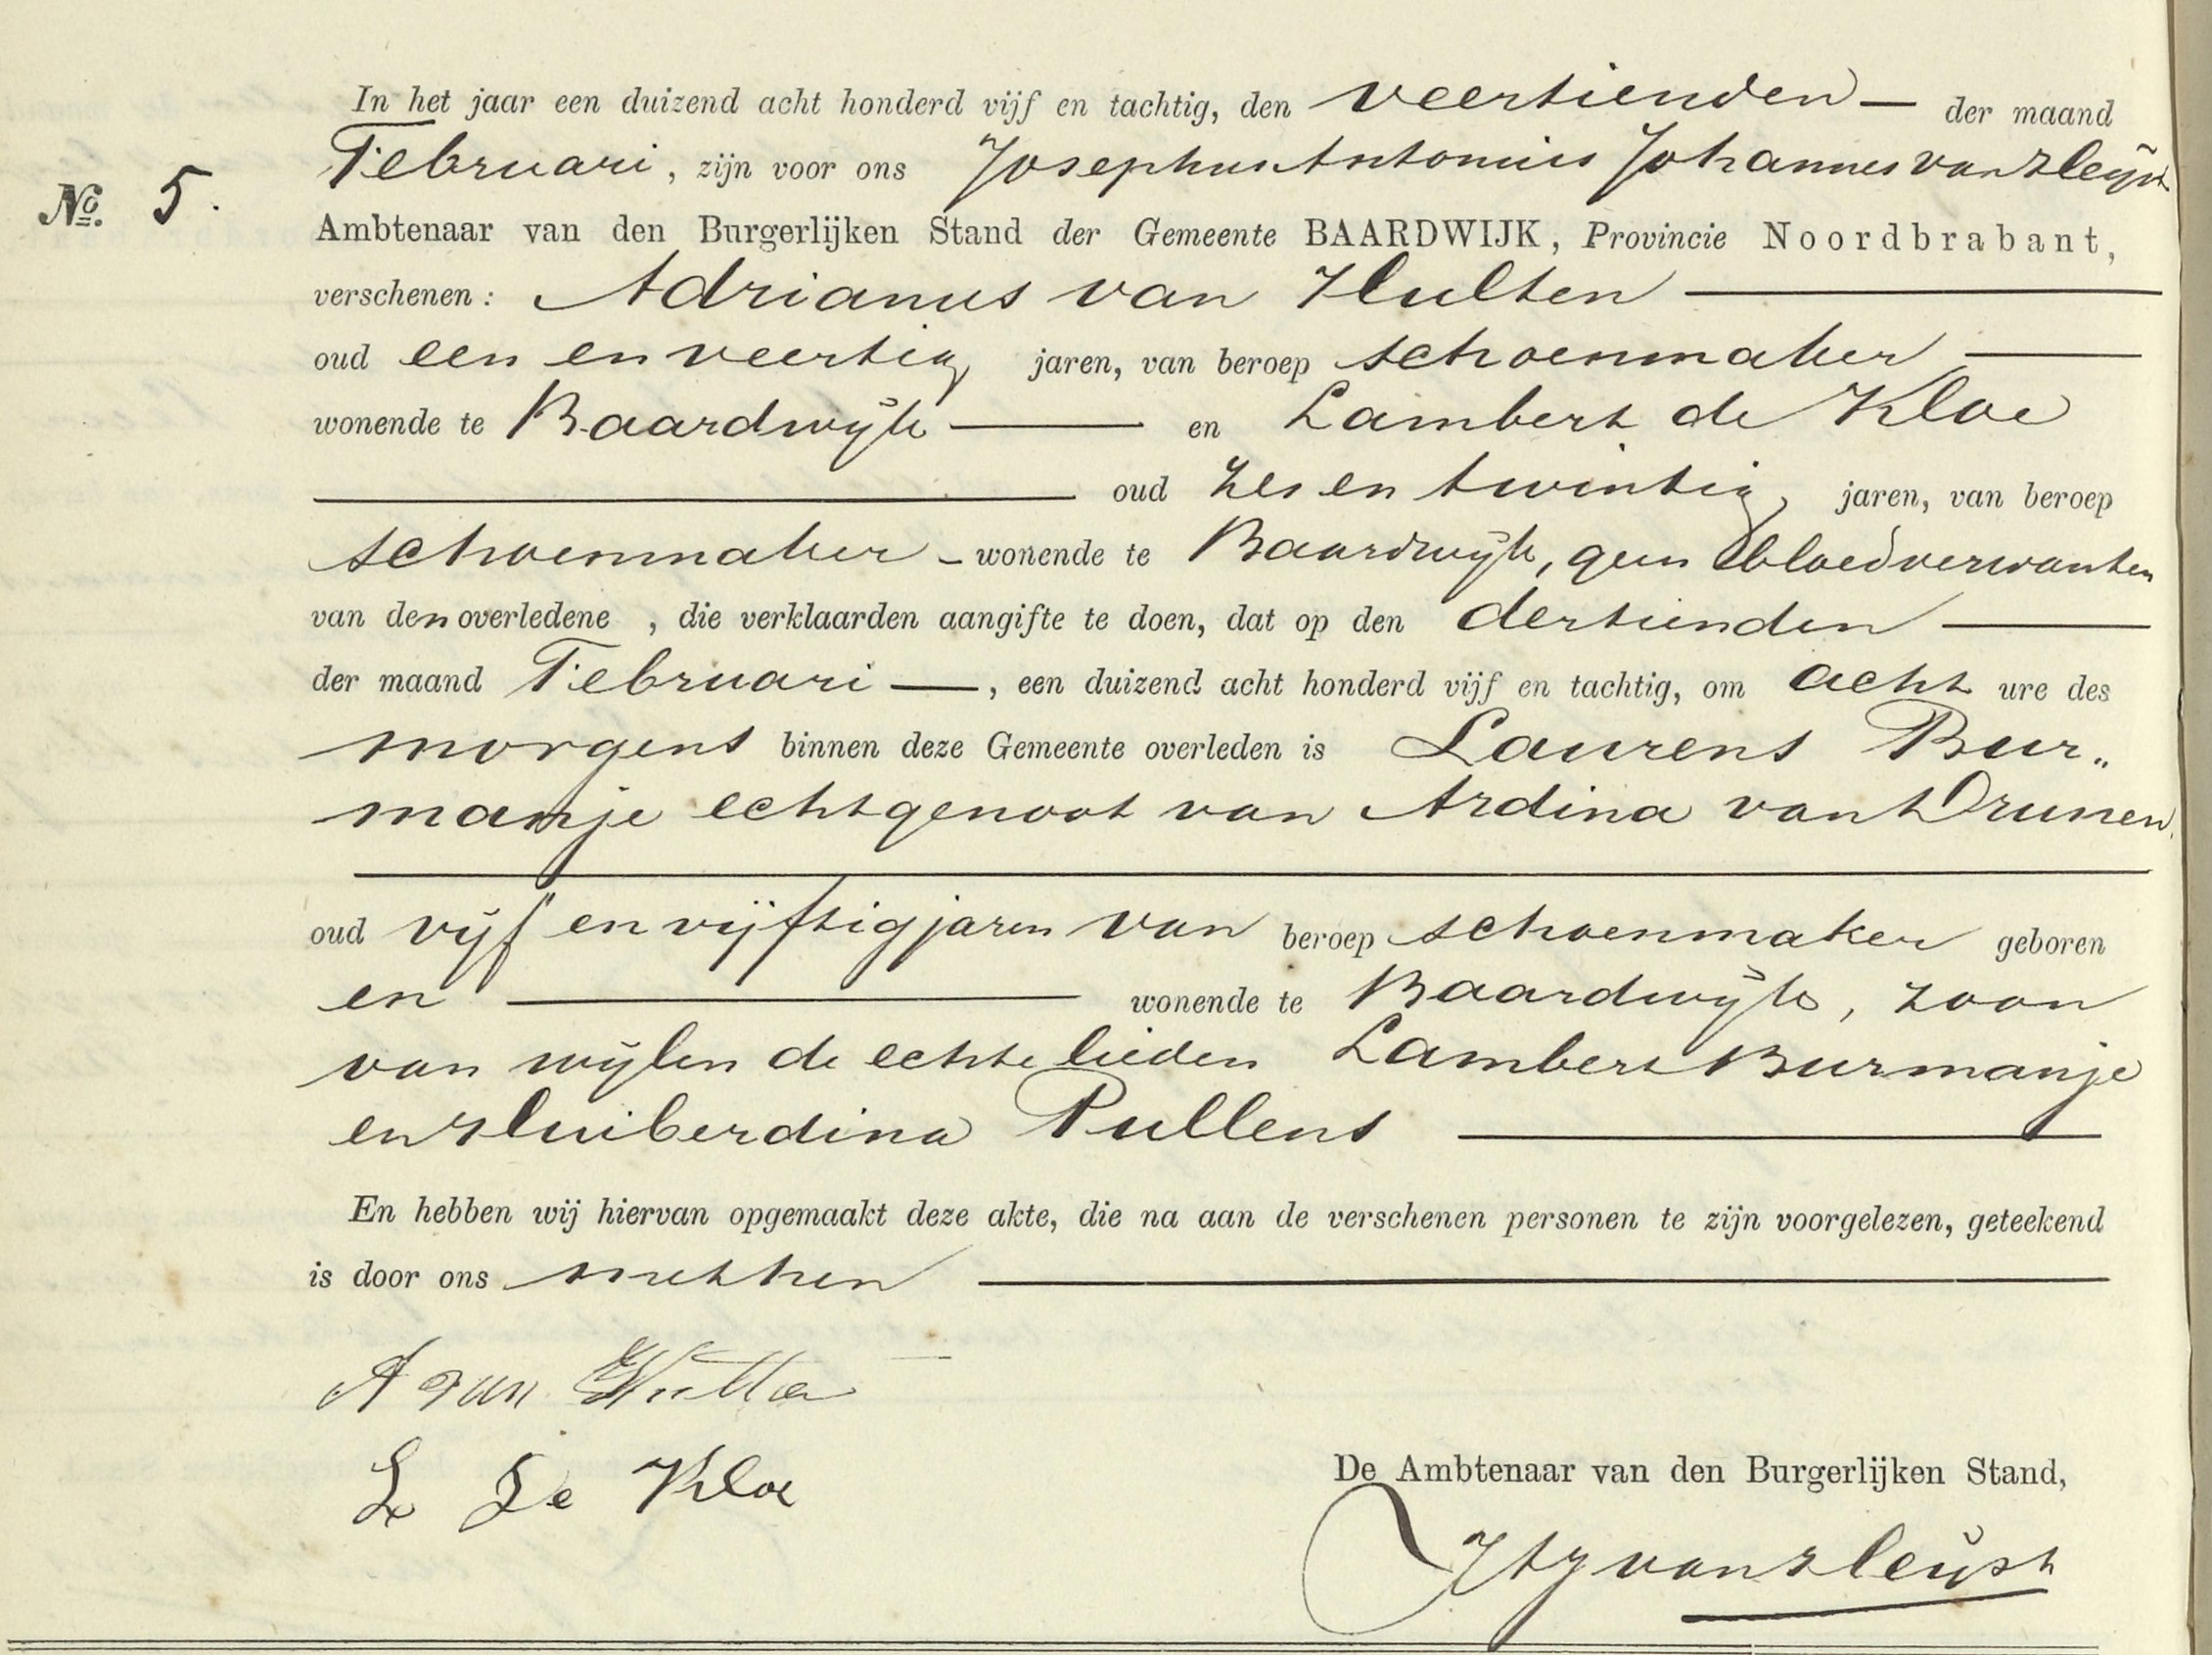 In het jaar een duizend acht honderd vijf en tachtig, den veertienden — der maand
Februari, zijn voor ons Josephus Antonius Johannes van Heijst
No. 5.
Ambtenaar van den Burgerlijken Stand der Gemeente BAARDWIJK, Provincie Noordbrabant,
verschenen: Adrianus van Hulten —
oud een en veertig jaren, van beroep schoenmaker —
wonende te Baardwijk — en Lambert de Kloe
— oud zes en twintig jaren, van beroep
schoenmaker - wonende te Baardwijk, geen bloedverwanten
van den overledene, die verklaarden aangifte te doen, dat op den dertienden —
der maand Februari —, een duizend acht honderd vijf en tachtig, om acht ure des
morgens binnen deze Gemeente overleden is Laurens Bur„
manje echtgenoot van Ardina van Drunen.
oud vijf en vijftig jaren van beroep schoenmaker geboren
en — wonende te Baardwijk, zoon
van wijlen de echtelieden Lambert Burmanje
en Huiberdina Pullens —
En hebben wij hiervan opgemaakt deze akte, die na aan de verschenen personen te zijn voorgelezen, geteekend
is door ons met hen —
A van Hulten
L De Kloe
De Ambtenaar van den Burgerlijken Stand,
JAJ van Heijst